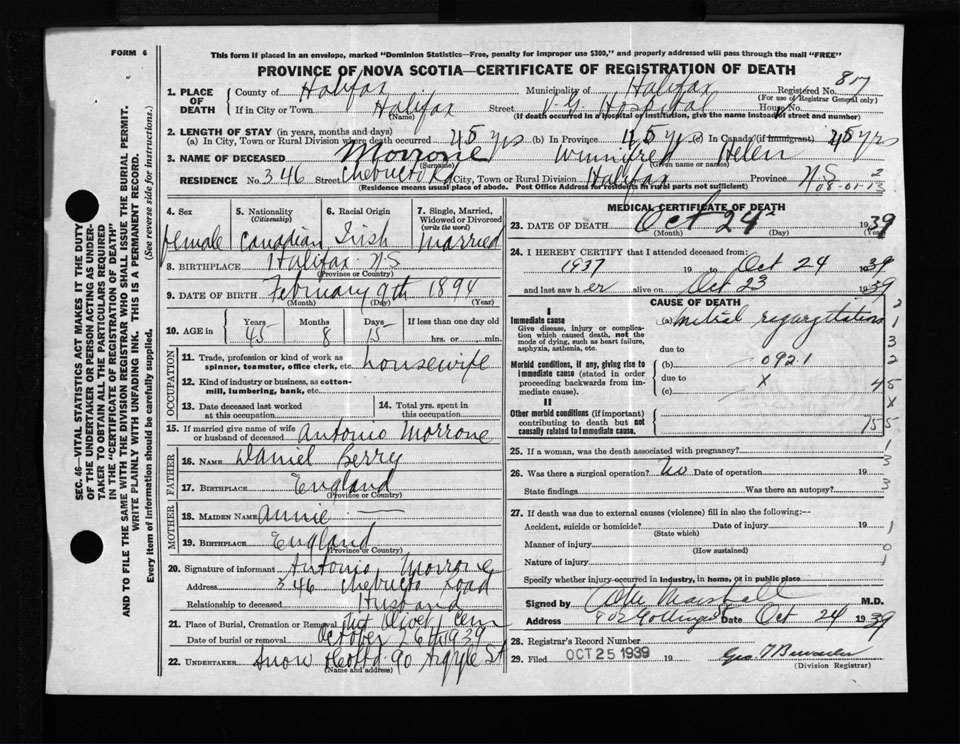 FORM 6
This form if placed in an envelope, marked "Dominion Statistics—Free, penalty for improper use $300," and properly addressed will pass through the mail "FREE"
PROVINCE OF NOVA SCOTIA—CERTIFICATE OF REGISTRATION OF DEATH
1. PLACE OF DEATH County of Halifax Municipality of Halifax Registered No. 817
(For use of Registrar General only)
If in City or Town Halifax Street V.G. Hospital House No.
(Name) (If death occurred in a hospital or institution, give the name instead of street and number)
2. LENGTH OF STAY (in years, months and days)
(a) In City, Town or Rural Division where death occurred 45 yrs (b) in Province 45 yrs (c) in Canada (if immigrant) 45 yrs
3. NAME OF DECEASED Morrone Winnifred Helen
(Surname) (Given name or names)
RESIDENCE No. 346 Street Chebucto Rd City, Town or Rural Division Halifax Province N.S
(Residence means usual place of abode. Post Office Address for residents in rural parts not sufficient) 08-01-1
4. Sex 5. Nationality (Citizenship) 6. Racial Origin 7. Single, Married, Widowed or Divorced (write the word)
female Canadian Irish Married
8. BIRTHPLACE Halifax N.S
(Province or Country)
9. DATE OF BIRTH February 9th 1894
(Month) (Day) (Year)
10. AGE in Years Months Days If less than one day old
45 8 15 hrs. or min.
OCCUPATION
11. Trade, profession or kind of work as spinner, teamster, office clerk, etc. housewife
12. Kind of industry or business, as cotton-mill, lumbering, bank, etc.
13. Date deceased last worked at this occupation
14. Total yrs. spent in this occupation
15. If married give name of wife or husband of deceased Antonio Morrone
FATHER
16. NAME Daniel Berry
17. BIRTHPLACE England
(Province or Country)
MOTHER
18. MAIDEN NAME Annie —
19. BIRTHPLACE England
(Province or Country)
20. Signature of informant Antonio Morrone
Address 346 Chebucto Road
Relationship to deceased Husband
21. Place of Burial, Cremation or Removal Mt Olivet Cem
Date of burial or removal October 26th 1939
22. UNDERTAKER Snow 90 Argyle St
(Name and address)
MEDICAL CERTIFICATE OF DEATH
23. DATE OF DEATH Oct 24 1939
(Month) (Day) (Year)
24. I HEREBY CERTIFY that I attended deceased from:
1937 19 to Oct 24 1939
and last saw her alive on Oct 23 1939
CAUSE OF DEATH
I
Immediate cause
Give disease, injury or complication which caused death, not the mode of dying, such as heart failure, asphyxia, asthenia, etc.
(a) Mitral regurgitation
due to
Morbid conditions, if any, giving rise to immediate cause (stated in order proceeding backwards from immediate cause).
(b) 092.1
due to x
(c)
II
Other morbid conditions (if important) contributing to death but not causally related to immediate cause.
25. If a woman, was the death associated with pregnancy?
26. Was there a surgical operation? No Date of operation 19
State findings Was there an autopsy?
27. If death was due to external causes (violence) fill in also the following:—
Accident, suicide or homicide? Date of injury 19
(State which)
Manner of injury
(How sustained)
Nature of injury
Specify whether injury occurred in industry, in home, or in public place
Signed by Marshall M.D.
Address Date Oct 24 1939
28. Registrar's Record Number
29. Filed OCT 25 1939 19 Geo.
(Division Registrar)
SEC. 46—VITAL STATISTICS ACT MAKES IT THE DUTY
OF THE UNDERTAKER OR PERSON ACTING AS UNDER-
TAKER TO OBTAIN ALL THE PARTICULARS REQUIRED
IN THE "CERTIFICATE OF REGISTRATION OF DEATH"
AND TO FILE THE SAME WITH THE DIVISION REGISTRAR WHO SHALL ISSUE THE BURIAL PERMIT.
WRITE PLAINLY WITH UNFADING INK. THIS IS A PERMANENT RECORD.
Every item of information should be carefully supplied. (See reverse side for instructions.)